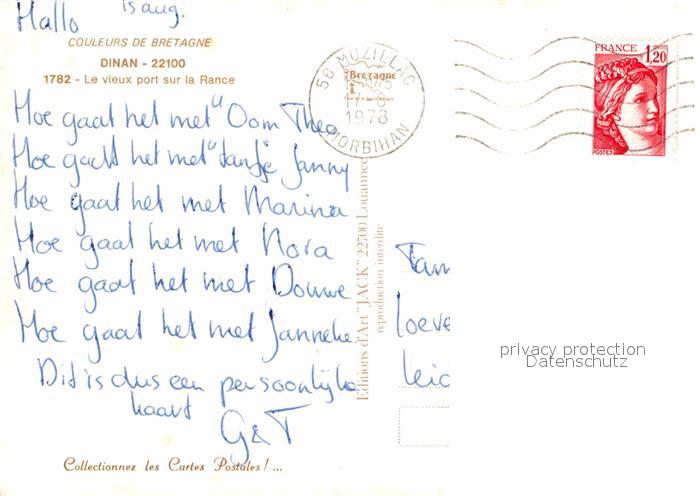 Hallo 15 aug.
COULEURS DE BRETAGNE
DINAN - 22100
1782 - Le vieux port sur la Rance
Hoe gaat het met "Oom Theo
Hoe gaat het met "tantje Janny
Hoe gaat het met Marina
Hoe gaat het met Nora
Hoe gaat het met Douwe
Hoe gaat het met Janneke
Dit is dus een persoonlijke
kaart
G&T
Collectionnez les Cartes Postales ! ...
Editions d'Art "JACK" 22700 Louannec
reproduction interdite
56 MUZILLAC
Bretagne
17-8
1978
MORBIHAN
FRANCE 1,20
POSTES
Fam
loeve
leid
privacy protection
Datenschutz